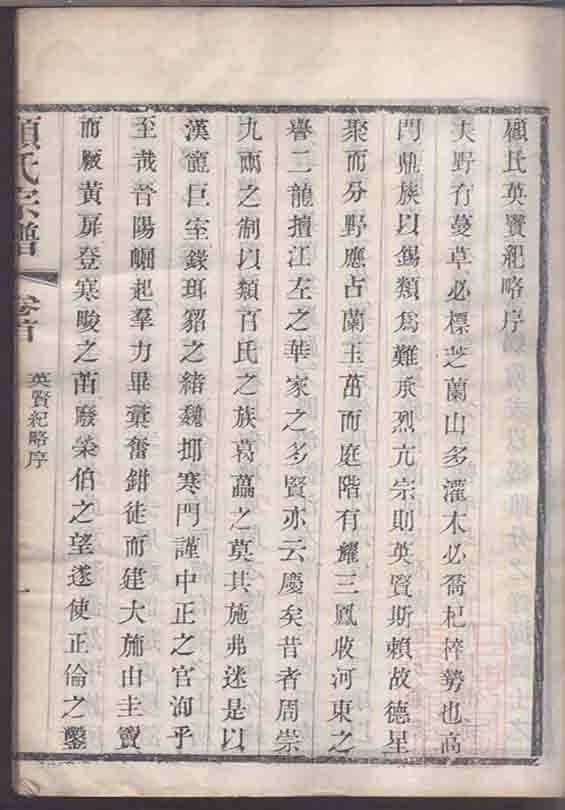 顧氏英賢紀略序
大野有蔓草必標芝蘭山多灌木必喬杞梓勢也高
門鼎族以錫類為難承烈亢宗則英賢斯賴故德星
聚而分野應占蘭玉茁而庭階有耀三鳳收河東之
譽二龍擅江左之華家之多賢亦云慶矣昔者周崇
九兩之制以類百氏之族葛藟之蔓其施弗迷是以
漢寵巨室錄珥貂之緒魏抑寒門謹中正之官洵乎
至哉晉陽崛起羣力畢彙奮鉗徒而建大施由主竇
而厰黃扉登寒畯之苗廢榮伯之望遂使正倫之鑿
顧氏宗譜
卷首
英賢紀略序
一